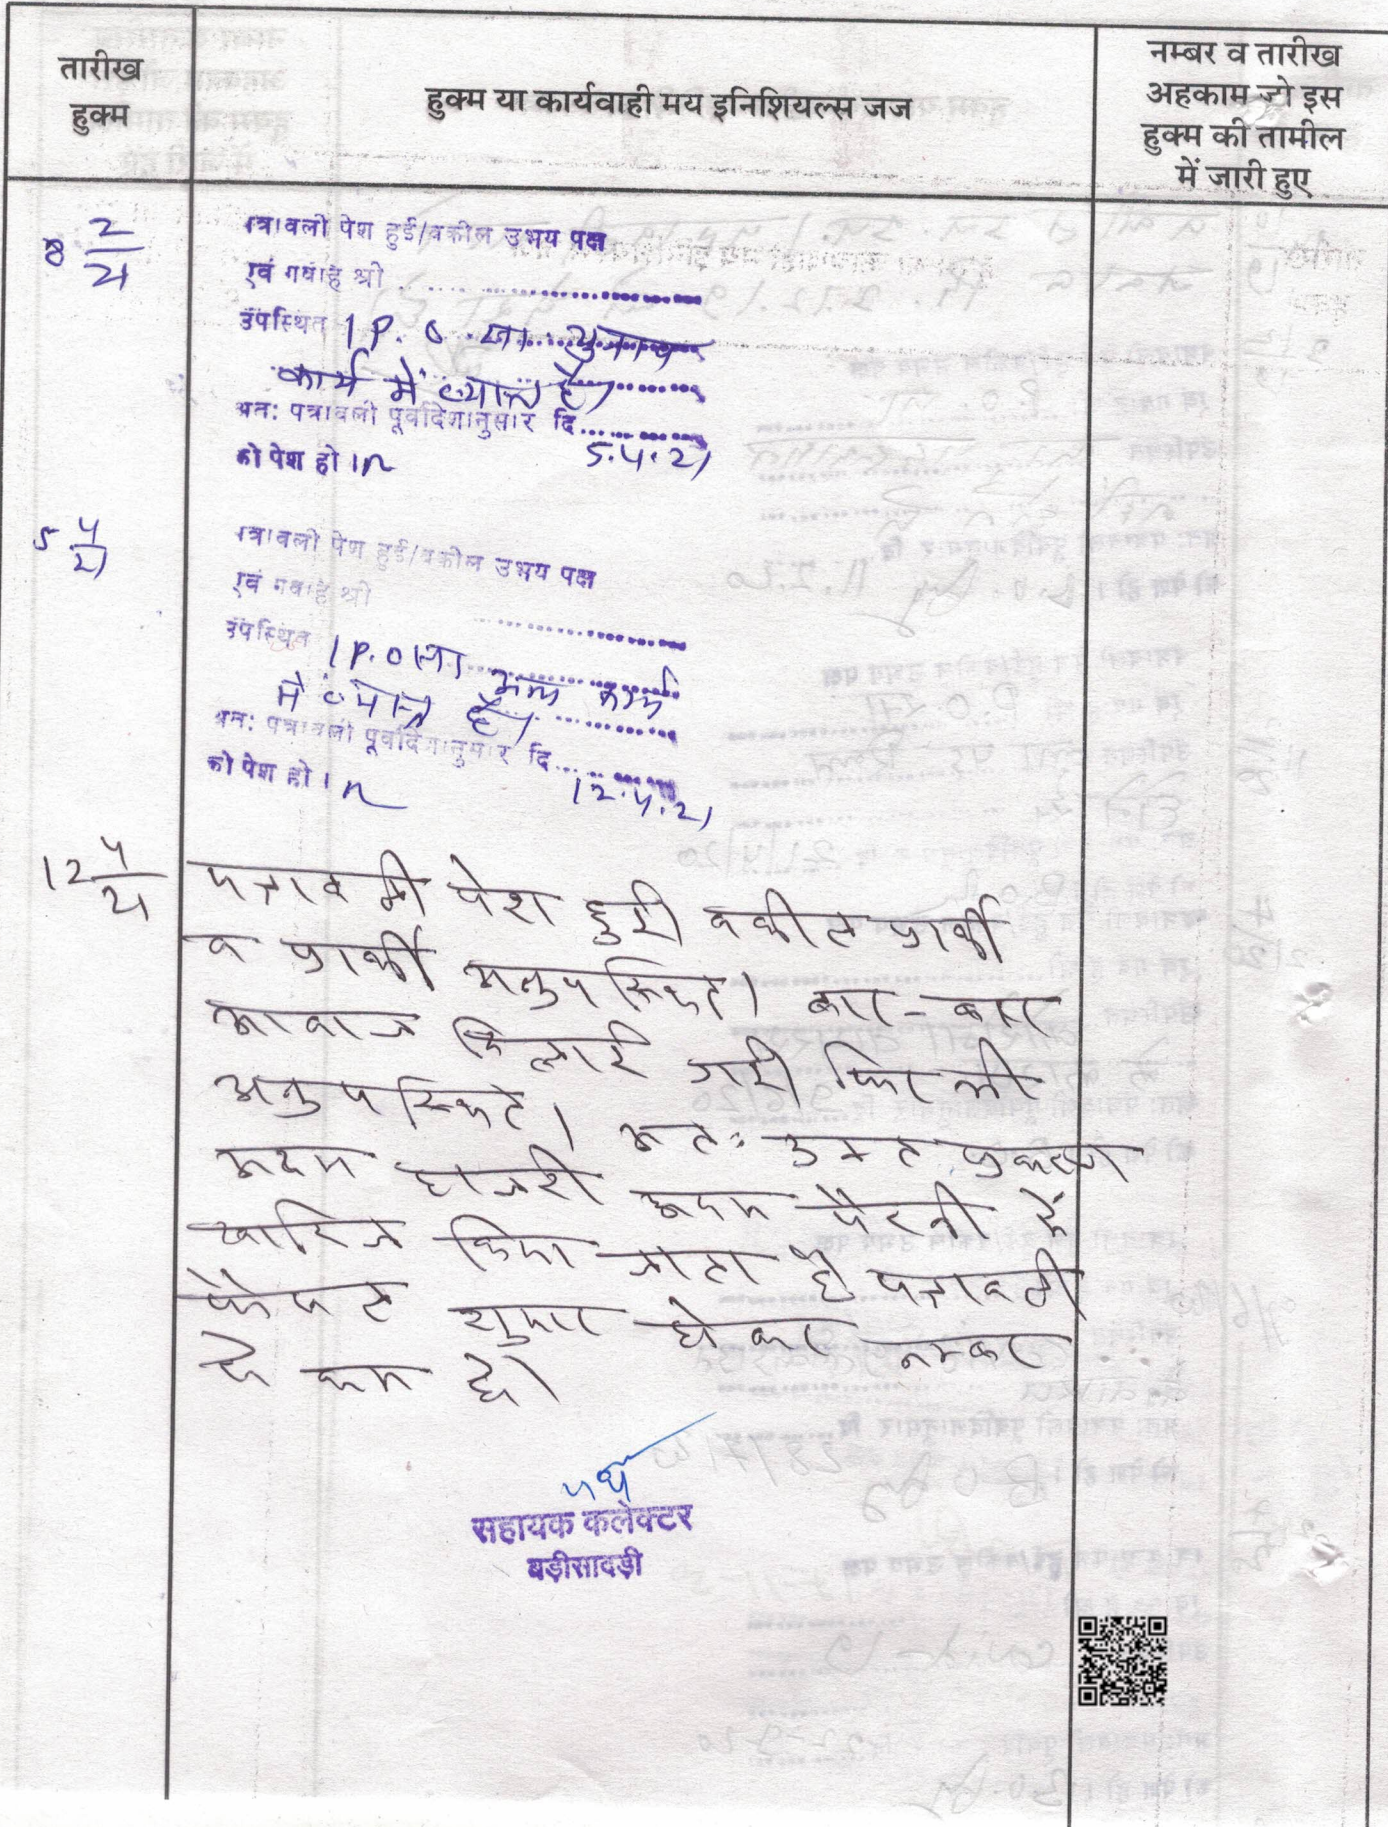 तारीख
हुक्म
हुक्म या कार्यवाही मय इनिशियल्स जज
नम्बर व तारीख
अहकाम जो इस
हुक्म की तामील
में जारी हुए
8 2/21
पत्रावली पेश हुई/वकील उभय पक्ष
एवं गवाह श्री
उपस्थित । P.O. सा. चुनाव
कार्य में व्यस्त है।
अत: पत्रावली पूर्वादेशानुसार दि.
को पेश हो। 5.4.21
5 4/21
पत्रावली पेश हुई/वकील उभय पक्ष
एवं गवाह श्री
उपस्थित । P.O सा. अन्य कार्य
में व्यस्त है।
अत: पत्रावली पूर्वादेशानुसार दि.
को पेश हो। 12.4.21
12 4/21
पत्रावली पेश हुई वकील प्रार्थी
व प्रार्थी अनुपस्थित। बार-बार
आवाज दिलाई गई फिर भी
अनुपस्थित। अत: उक्त प्रकरण
अदम हाजरी अदम पैरवी में
खारिज किया जाता है पत्रावली
फैसल शुमार होकर नम्बर
से कम हो।
सहायक कलेक्टर
बड़ीसादड़ी